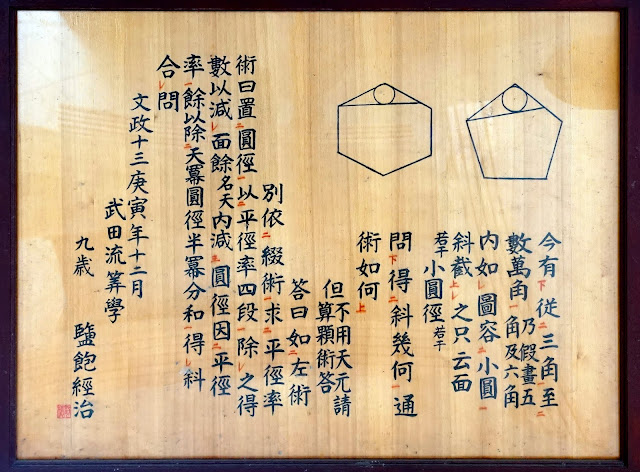 今有從三角至
數萬角乃假畫五
角及六角
內如圖容小圓
斜截之只云面
若干小圓徑若干
問得斜幾何通
術如何
但不用天元請
算顆術答
答曰如左術
別依綴術求平徑率
術曰置圓徑以平徑率四段除之得
數以減面餘名天內減圓徑因平徑
率餘以除天冪圓徑半冪分和得斜
合問
文政十三庚寅年十二月
武田流筭學
九歳 鹽飽經治